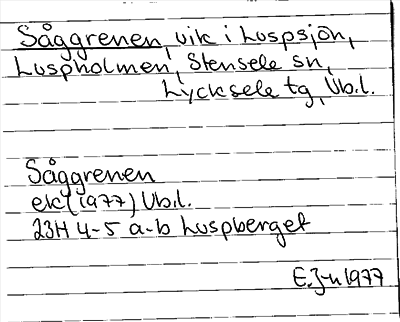 Såggrenen, vik i Luspsjön,
Luspholmen, Stensele sn,
Lycksele tg, Vb.l.
Såggrenen
ek (1977) Vb.l.
23H 4-5 a-b Luspberget
E.Z-n 1977